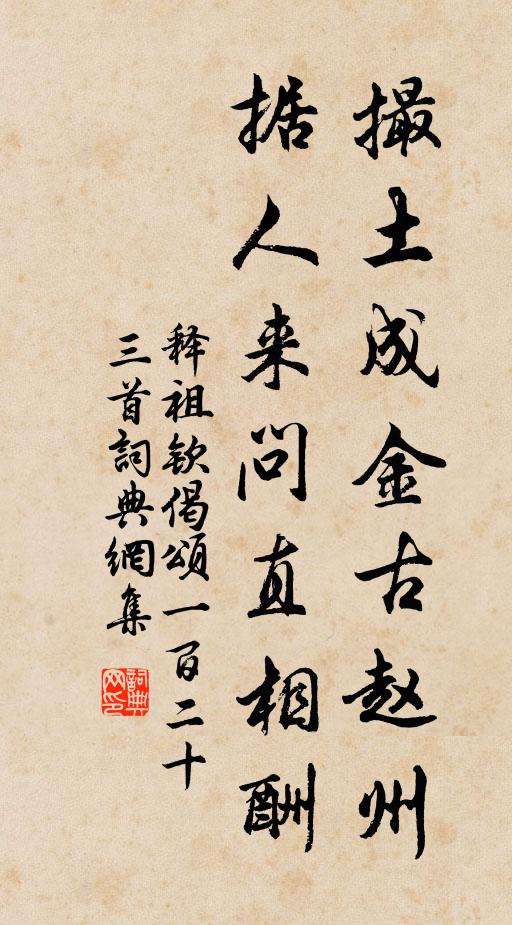 撮土成金古赵州
据人来问直相酬
释祖钦偈颂一百二十
三首詞典網集
詞典
网印